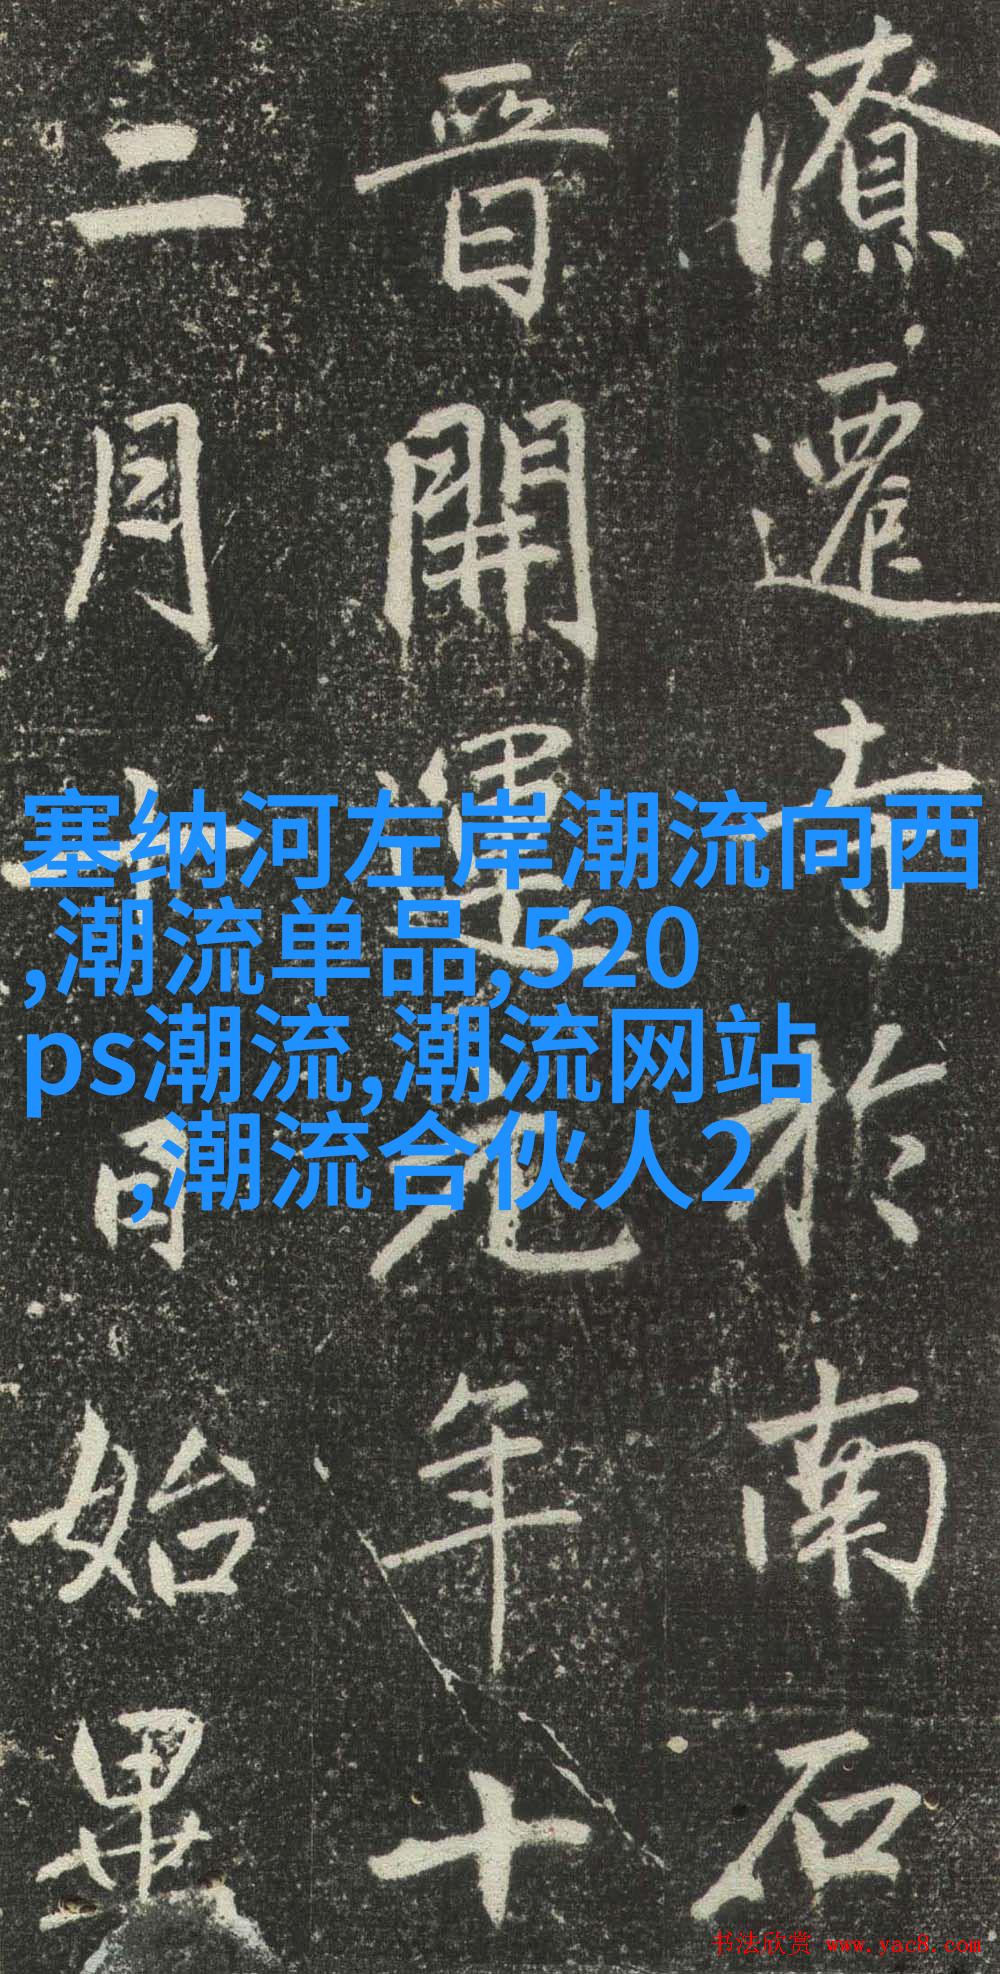 潦遷寺於南石
晉開運元年十
二月十日始畢
塞纳河左岸潮流向西
,潮流单品,520
ps潮流,潮流网站
,潮流合伙人2
书法欣赏 www.yac8.com